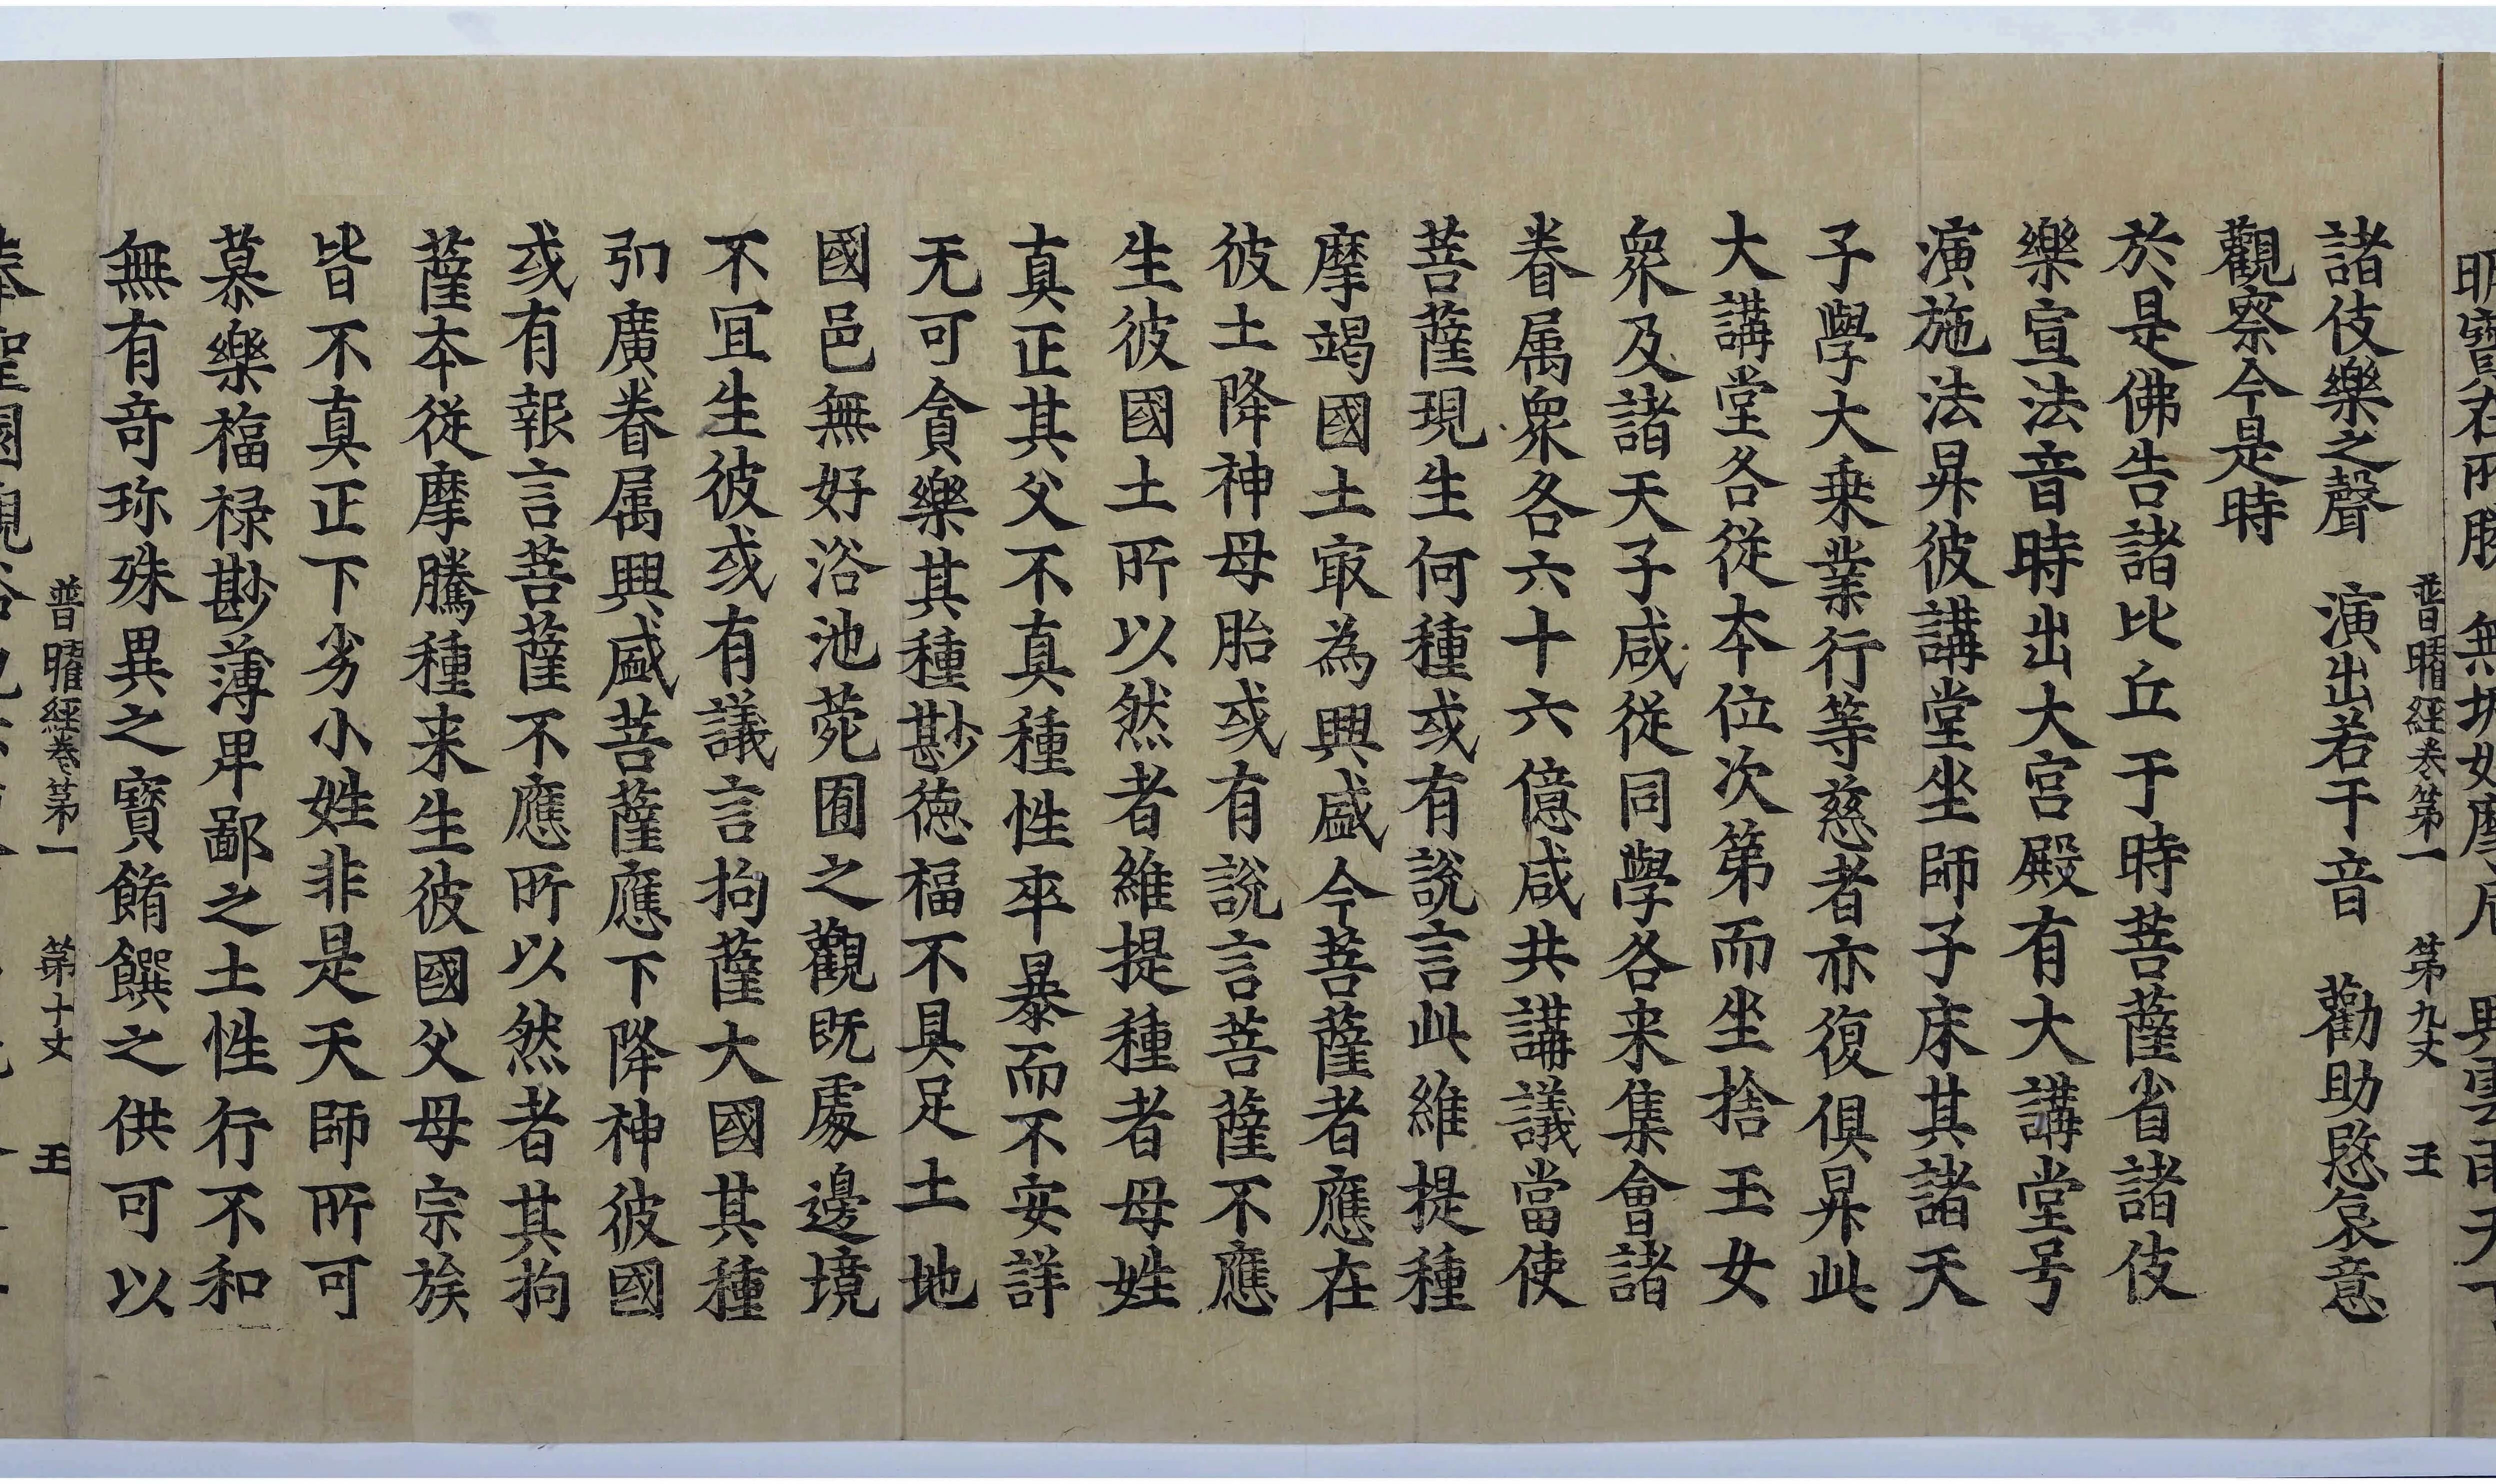 明寶在所勝　無垢如摩尼　興雲雨天下
普曜經卷第一　第九丈　王
諸伎樂之聲　演出若干音　勸助愍哀意
觀察今是時
於是佛告諸比丘于時菩薩省諸伎
樂宣法音時出大宮殿有大講堂号
演施法昇彼講堂坐師子床其諸天
子學大乗業行等慈者亦復俱昇此
大講堂各從本位次第而坐捨王女
衆及諸天子咸從同學各来集會諸
眷属衆各六十六億咸共講議當使
菩薩現生何種或有說言此維提種
摩竭國土冣為興盛今菩薩者應在
彼土降神母胎或有說言菩薩不應
生彼國土所以然者維提種者母姓
真正其父不真種性卒暴而不安詳
无可貪樂其種尠德福不具足土地
國邑無好浴池菀囿之觀既處邊境
不冝生彼或有議言拘薩大國其種
引廣眷属興盛菩薩應下降神彼國
或有報言菩薩不應所以然者其拘
薩本從摩騰種来生彼國父母宗族
皆不真正下劣小姓非是天師所可
慕樂福禄尠薄卑鄙之土性行不和
無有竒珎殊異之寶餚饌之供可以
普曜經卷第一　第十丈　王